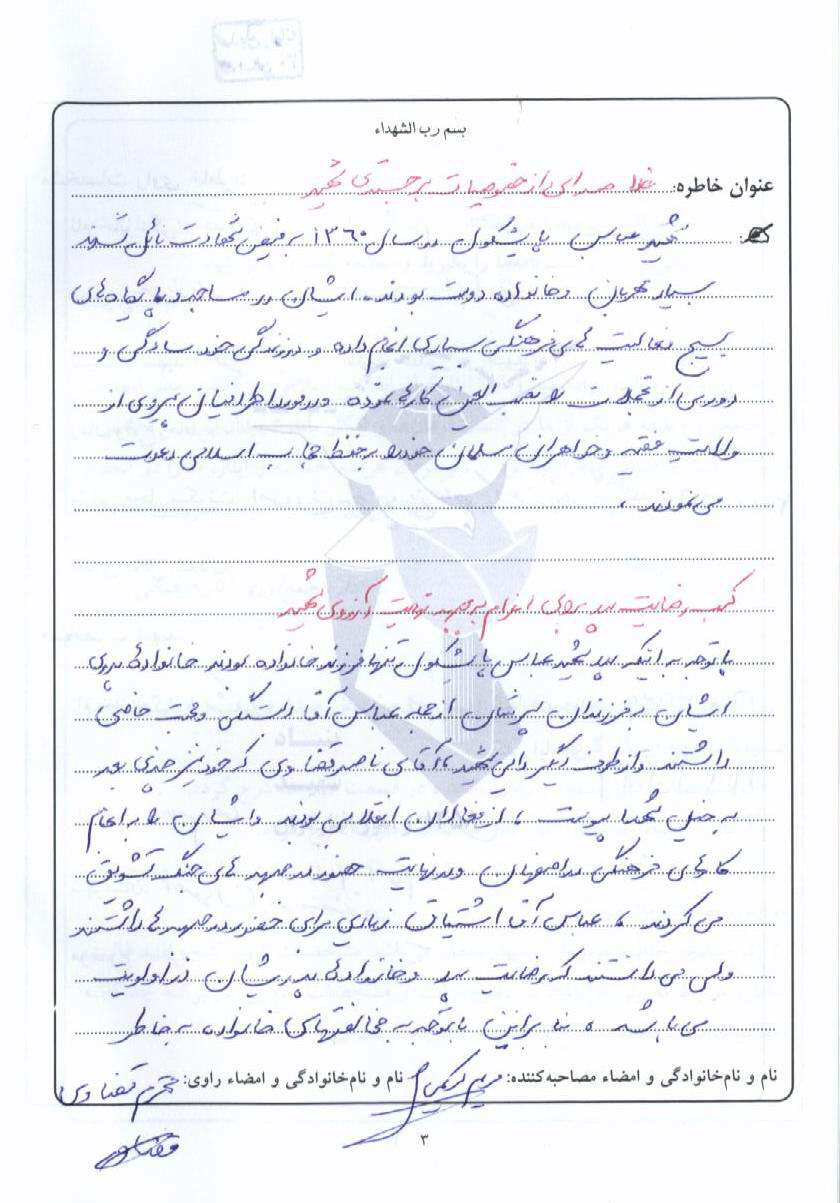 بسم رب الشهداء
عنوان خاطره: خدا صدای از خصوصیات برجسته‌ی شهید
شهید عباس پاشنگول در سال ۱۳۶۰ به فیض شهادت نائل شد
بسیار مهربان و خانواده دوست بودند. ایشان در مساجد و پایگاه‌های
بسیج فعالیت های فرهنگی بسیاری انجام داده و در زندگی خود سادگی و
دوری از تجملات را نصب العین کارها نموده و در مورد اطرافیان پیروی از
ولایت فقیه و خواهران مسلمان خود را به حفظ حجاب اسلامی دعوت
می نمودند.
کسب رضایت پدر برای اعزام به جبهه نهایت آرزوی شهید
با توجه به اینکه پدر شهید عباس تنها فرزند خانواده بودند خانواده‌ی پدری
ایشان به فرزندان پسرشان از جمله عباس آقا دلبستگی و محبت خاصی
داشتند و از طرف دیگر دایی شهید، آقای ناصر قضاوی که خود نیز چندی بعد
به خیل شهدا پیوست، از فعالان انقلابی بودند و ایشان را به انجام
کارهای فرهنگی در اصفهان و در نهایت حضور در جبهه های جنگ تشویق
می کردند، عباس آقا اشتیاق زیادی برای حضور در جبهه ها داشتند
ولی می دانستند که رضایت پدر و خانواده‌ی پدریشان در اولویت
می باشد، بنابراین با توجه به مخالفتهای خانواده به خاطر
نام و نام‌خانوادگی و امضاء مصاحبه‌کننده: مریم نام و نام‌خانوادگی و امضاء راوی: محترم قضاوی
۳